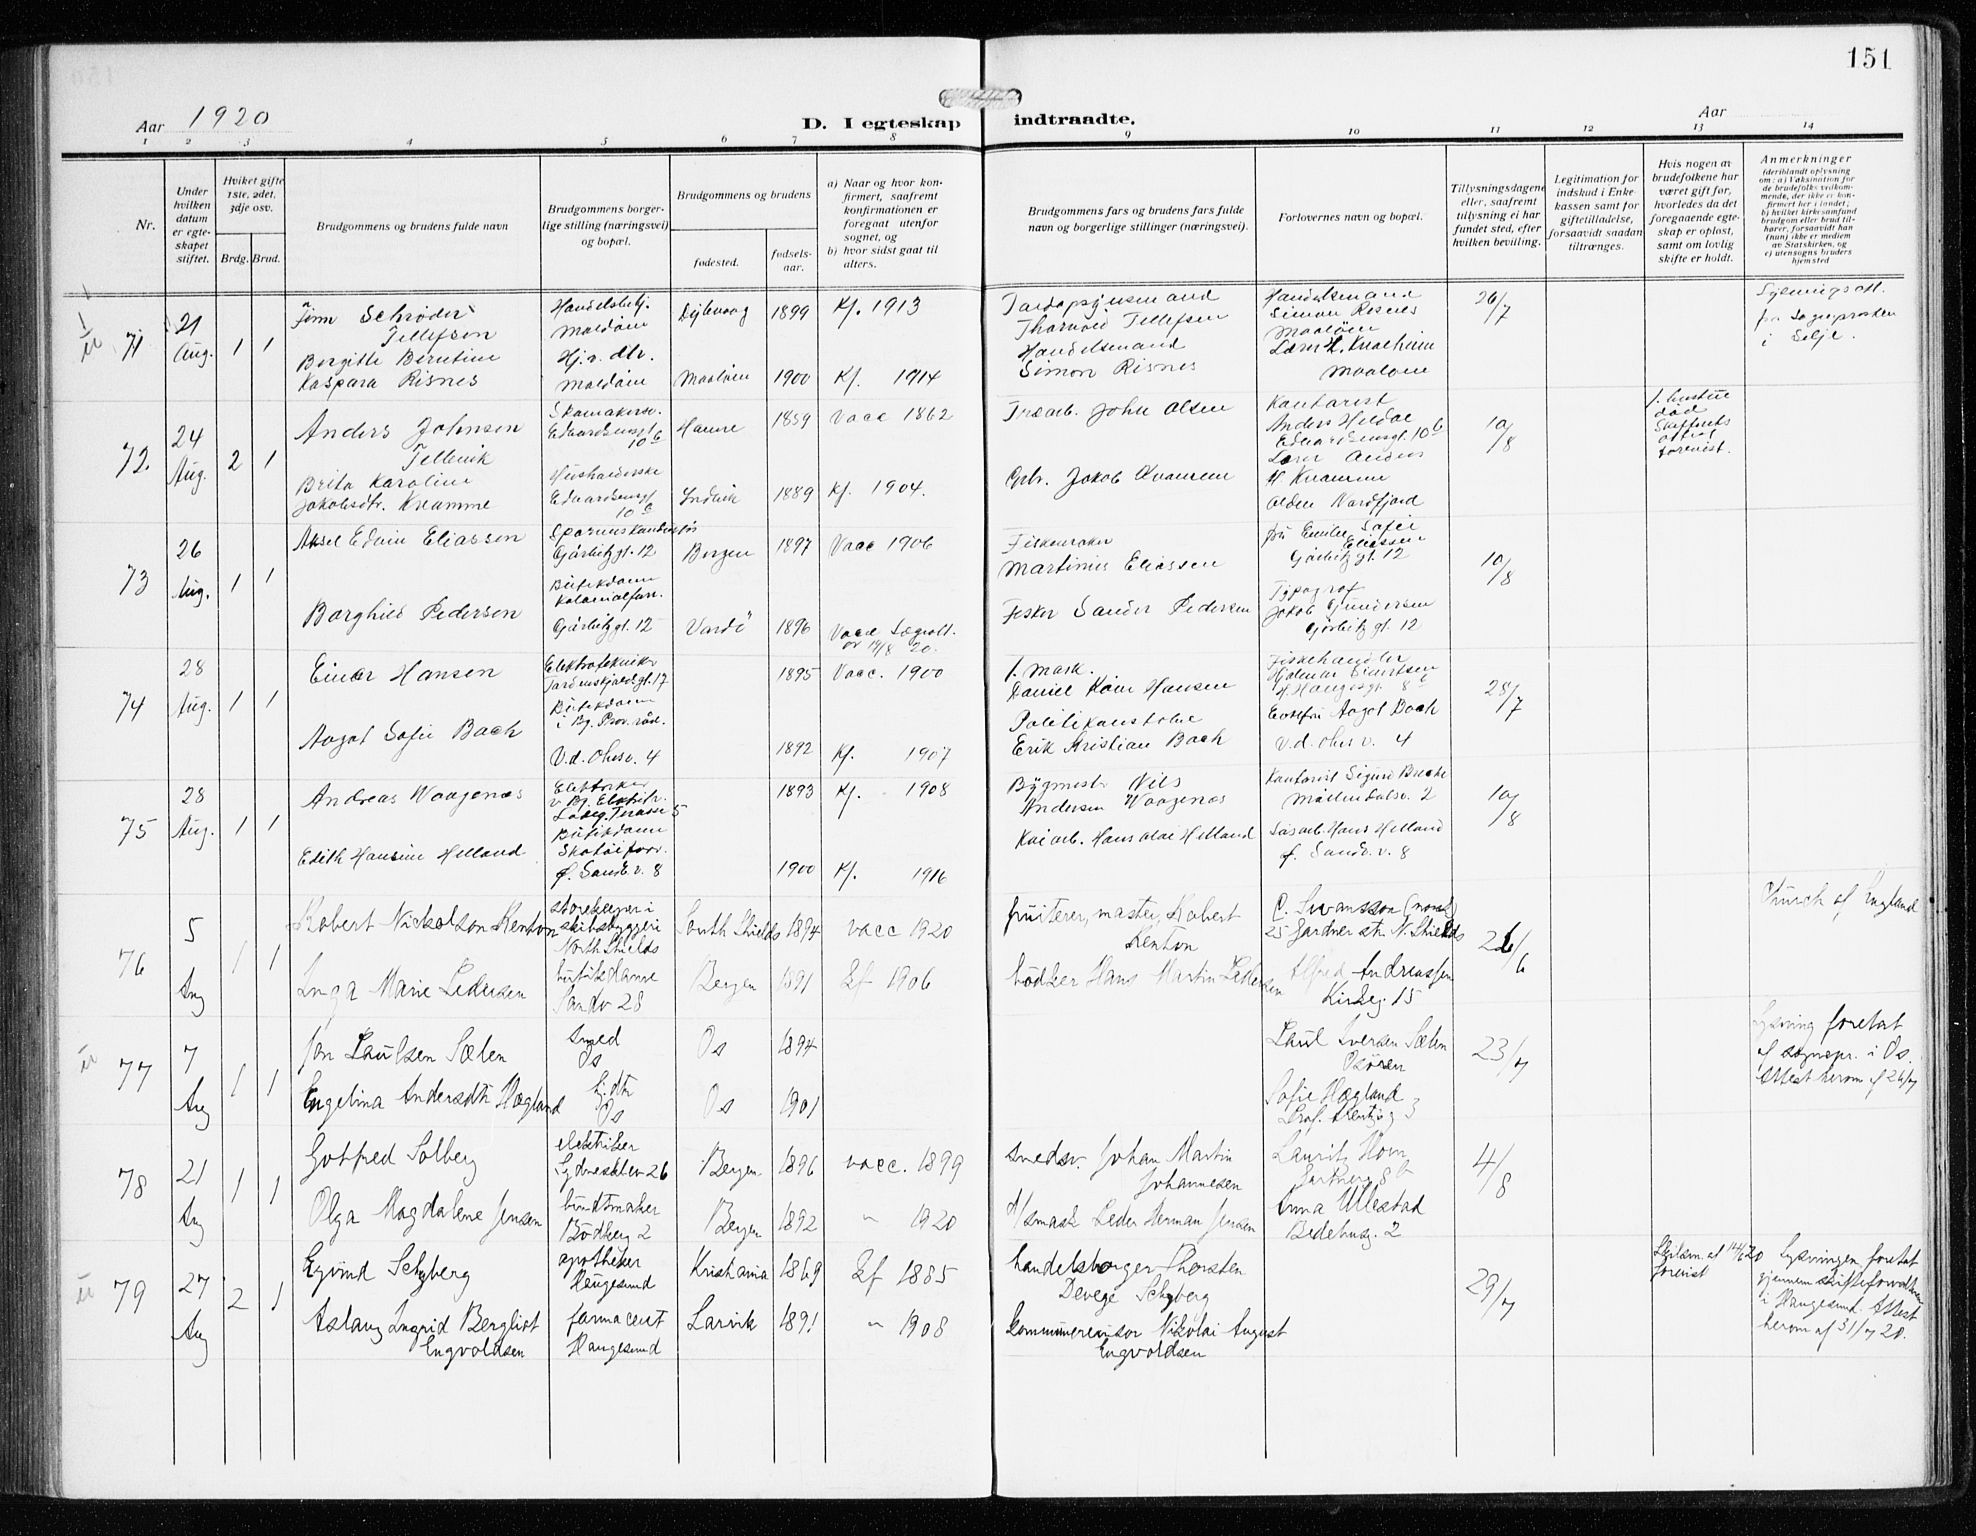 151
Aar 1920
D. I egteskap indtraadte.
Aar
1 2 3 4 5 6 7 8 9 10 11 12 13 14
Nr.
Under hvilken datum er egteskapet stiftet.
Hvilket gifte 1ste, 2det, 3dje osv.
Brdg. Brud.
Brudgommens og brudens fulde navn
Brudgommens borgerlige stilling (næringsvei) og bopæl.
Brudgommens og brudens
fødested.
fødselsaar.
a) Naar og hvor konfirmert, saafremt konfirmationen er foregaat utenfor sognet, og
b) hvor sidst gaat til alters.
Brudgommens fars og brudens fars fulde navn og borgerlige stillinger (næringsvei).
Forlovernes navn og bopæl.
Tillysningsdagene eller, saafremt tillysning ei har fundet sted, efter hvilken bevilling.
Legitimation for indskud i Enkekassen samt for giftetilladelse, forsaavidt saadan tiltrænges.
Hvis nogen av brudefolkene har været gift før, hvorledes da det foregaaende egteskap er opløst, samt om lovlig skifte er holdt.
Anmerkninger
(deriblandt oplysning om: a) Vaksination for de brudefolks vedkommende, der ikke er konfirmert her i landet; b) hvilket kirkesamfund brudgom eller brud tilhører, forsaavidt han (hun) ikke er medlem av Statskirken, og c) utensogns bruders hjemsted
71 21 Aug. 1 1
Finn Schrøder Tillefsen Maaløen 1899 Kf. 1913
Thorvald Tillefsen
Handelsmand Simon Risnes Maaløen
26/7
i Selje.
Borgitte Berntine Kaspara Risnes
Maaløen Maaløen 1900 Kf. 1914
Handelsmand Simon Risnes
Maaløen
72. 24 Aug. 2 1
Anders Johnsen Tellevik
Edvardsensgt. 10 c Hamre 1859 Vacc 1862
Træarb. John Olsen
Kontorist Anders Heldal Edvardsensgt. 10 c
10/8
1. hustru død
forevist.
Brita Karoline Jakobsdtr. Kvamme
Husholderske Edvardsensgt 10 c Indvik 1889 Kf. 1904.
Gbr. Jakob Kvamme
Lærer Anders Kvamme
Olden Nordfjord
73 26 Aug. 1 1
Aksel Edvin Eliassen
Gørbitzgt. 12 Bergen 1897 Vacc 1906
Martinius Eliassen
fru Emilie Sofie Eliassen Gørbitzgt. 12
10/8
Borghild Pedersen
Butikdame Kolonialforr. Gørbitzgt. 12 Vardö 1896 Vacc
Fisker Sander Pedersen
Typograf Jakob Gundersen Gørbitzgt. 12
74 28 Aug. 1 1
Einar Hansen
Elektrotekniker Tordenskjoldsgt. 17 1895 Vacc. 1900
1. mask. Daniel Hansen
Fiskehandler Hjalmar
28/7
Aagot Sofie Bach
Butikdame i Bg. Prov. råd. V.d. Ohrsv. 4 1892 Kf. 1907
Politikonstabel Erik Kristian Bach
Aagot Bach V.d. Ohrsv. 4
75 28 Aug. 1 1
Andreas Waagenæs
Elektriker 1893 Kf. 1908
Bygmester Nils Andersen Waagenæs
Kontorist Sigurd Møllendalsv. 2
10/8
Edith Hansine Helland
Butikdame Skotøiforr. Ø. Sandv. v. 8 1900 Kf. 1916
Kaiarb. Hans Olai Helland
Hans Helland Ø. Sandv. v. 8
76 5 Aug 1 1
Robert Nickolson Renton
storekeeper i skibsbyggeri North Shields South Shields 1894 vacc 1920
fruiterer, master, Robert Renton
C. Swansson (norsk) 25 Gardner str. N. Shields
26/6
Church of England
Inga Marie Pedersen
butikdame Sandv 28 Bergen 1891 kf 1906
bødker Hans Martin Pedersen
Alfred Andreassen Kirkeg. 15
77 7 Aug 1 1
Jon Paulsen Sælen
smed Os Os 1894
Paul Iversen Sælen Osøren
23/7
Lysning foretat af sognepr. i Os. Attest herom af 26/7
Engelina Andersdtr Hægland
Gjdtr Os Os 1901
Sofie Hægland
78 21 Aug 1 1
Gotfred Solberg
elektriker Sydneskleven 26 Bergen 1896 vacc. 1899
smedsv. Johan Martin Johannesen
Laurits Horn
4/8
Olga Magdalene Jensen
bundtmaker Bødkerg 2 Bergen 1892 " 1920
Peder Herman Jensen
Anna Ullestad Bedehusg. 2
79 27 Aug 2 1
Eyvind Schyberg
apotheker Haugesund Kristiania 1869 kf 1885
handelsborger Thorsten Devege Schyberg
29/7
Skilsm. af 12/6 20 forevist
Lysningen foretat gjennem skifteforvalteren i Haugesund. Attest herom af 31/7 20.
Aslaug Ingrid Bergliot Engvoldsen
farmaceut Haugesund Larvik 1891 " 1908
kommunerevisor Nikolai August Engvoldsen